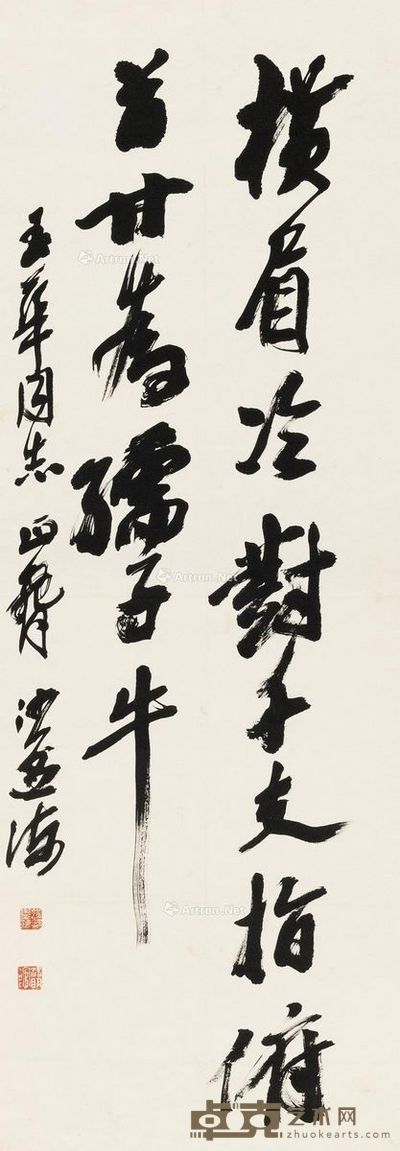 橫眉冷對千夫指俯
首甘為孺子牛
玉華同志正 沙孟海
Artron.Net
Artron.Net
Artron.Net
卓克艺术网
zhuokearts.com